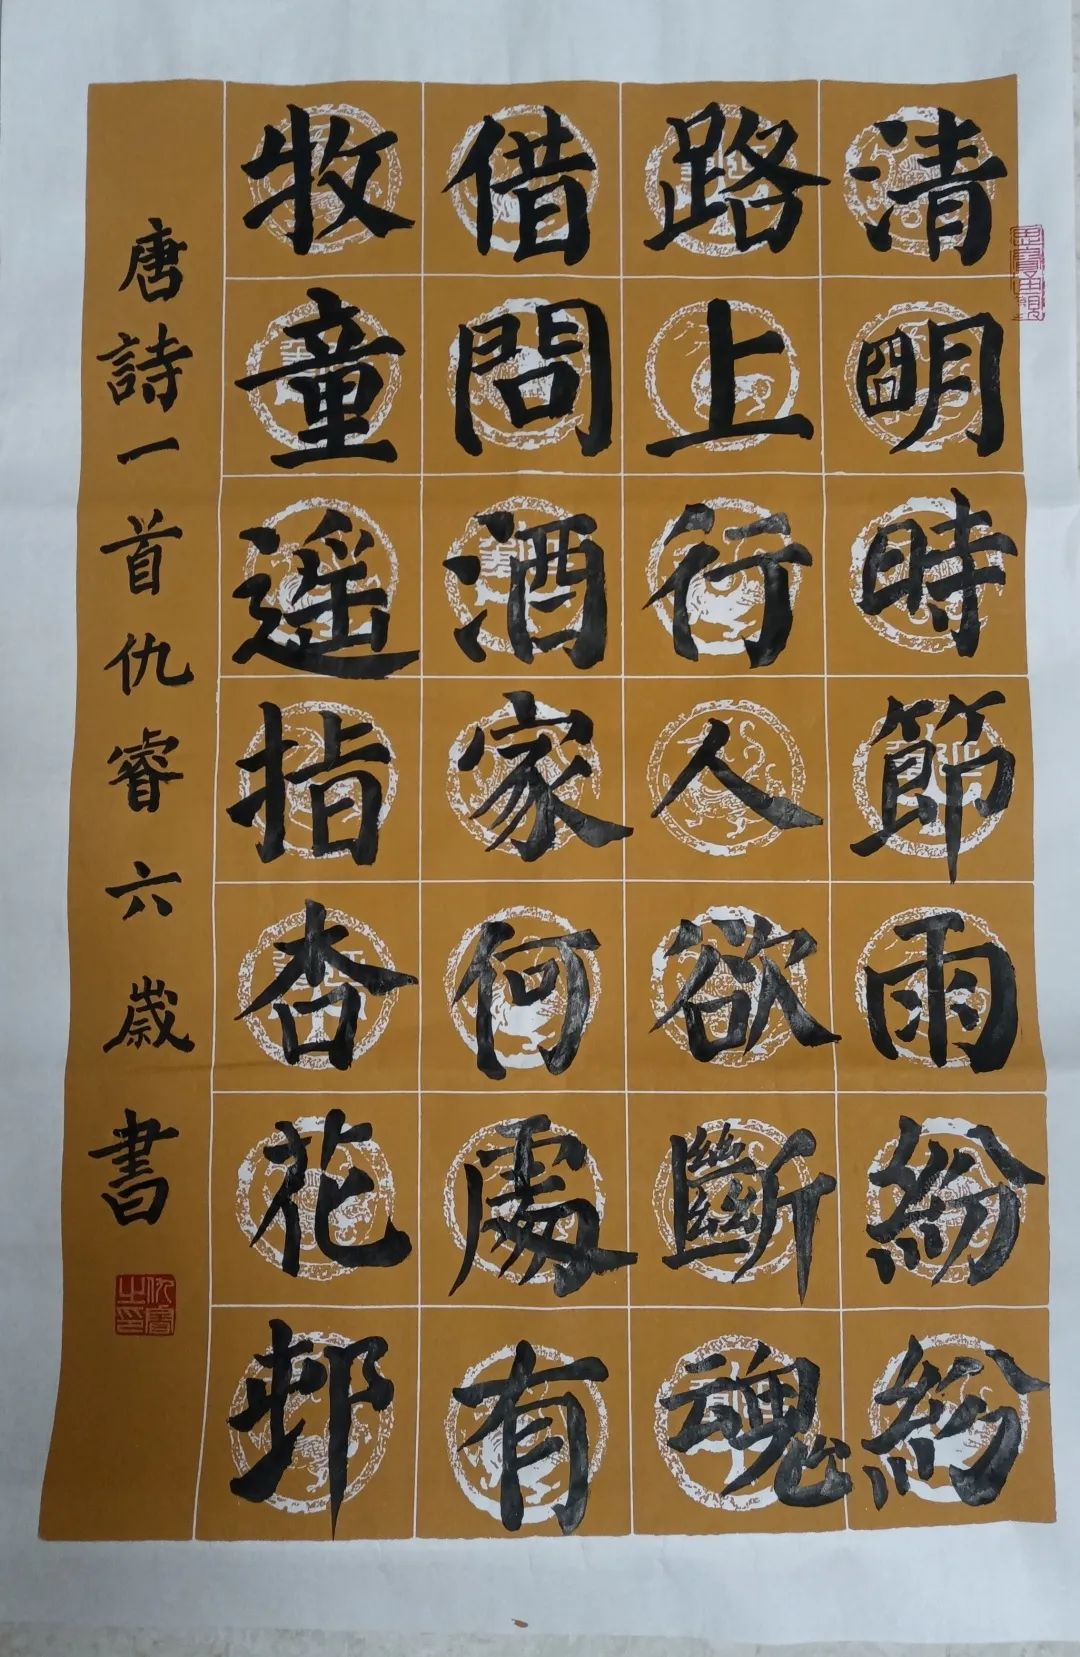 清明時節雨紛紛
路上行人欲斷魂
借問酒家何處有
牧童遥指杏花邨
唐詩一首仇睿六歲書
仇睿之印